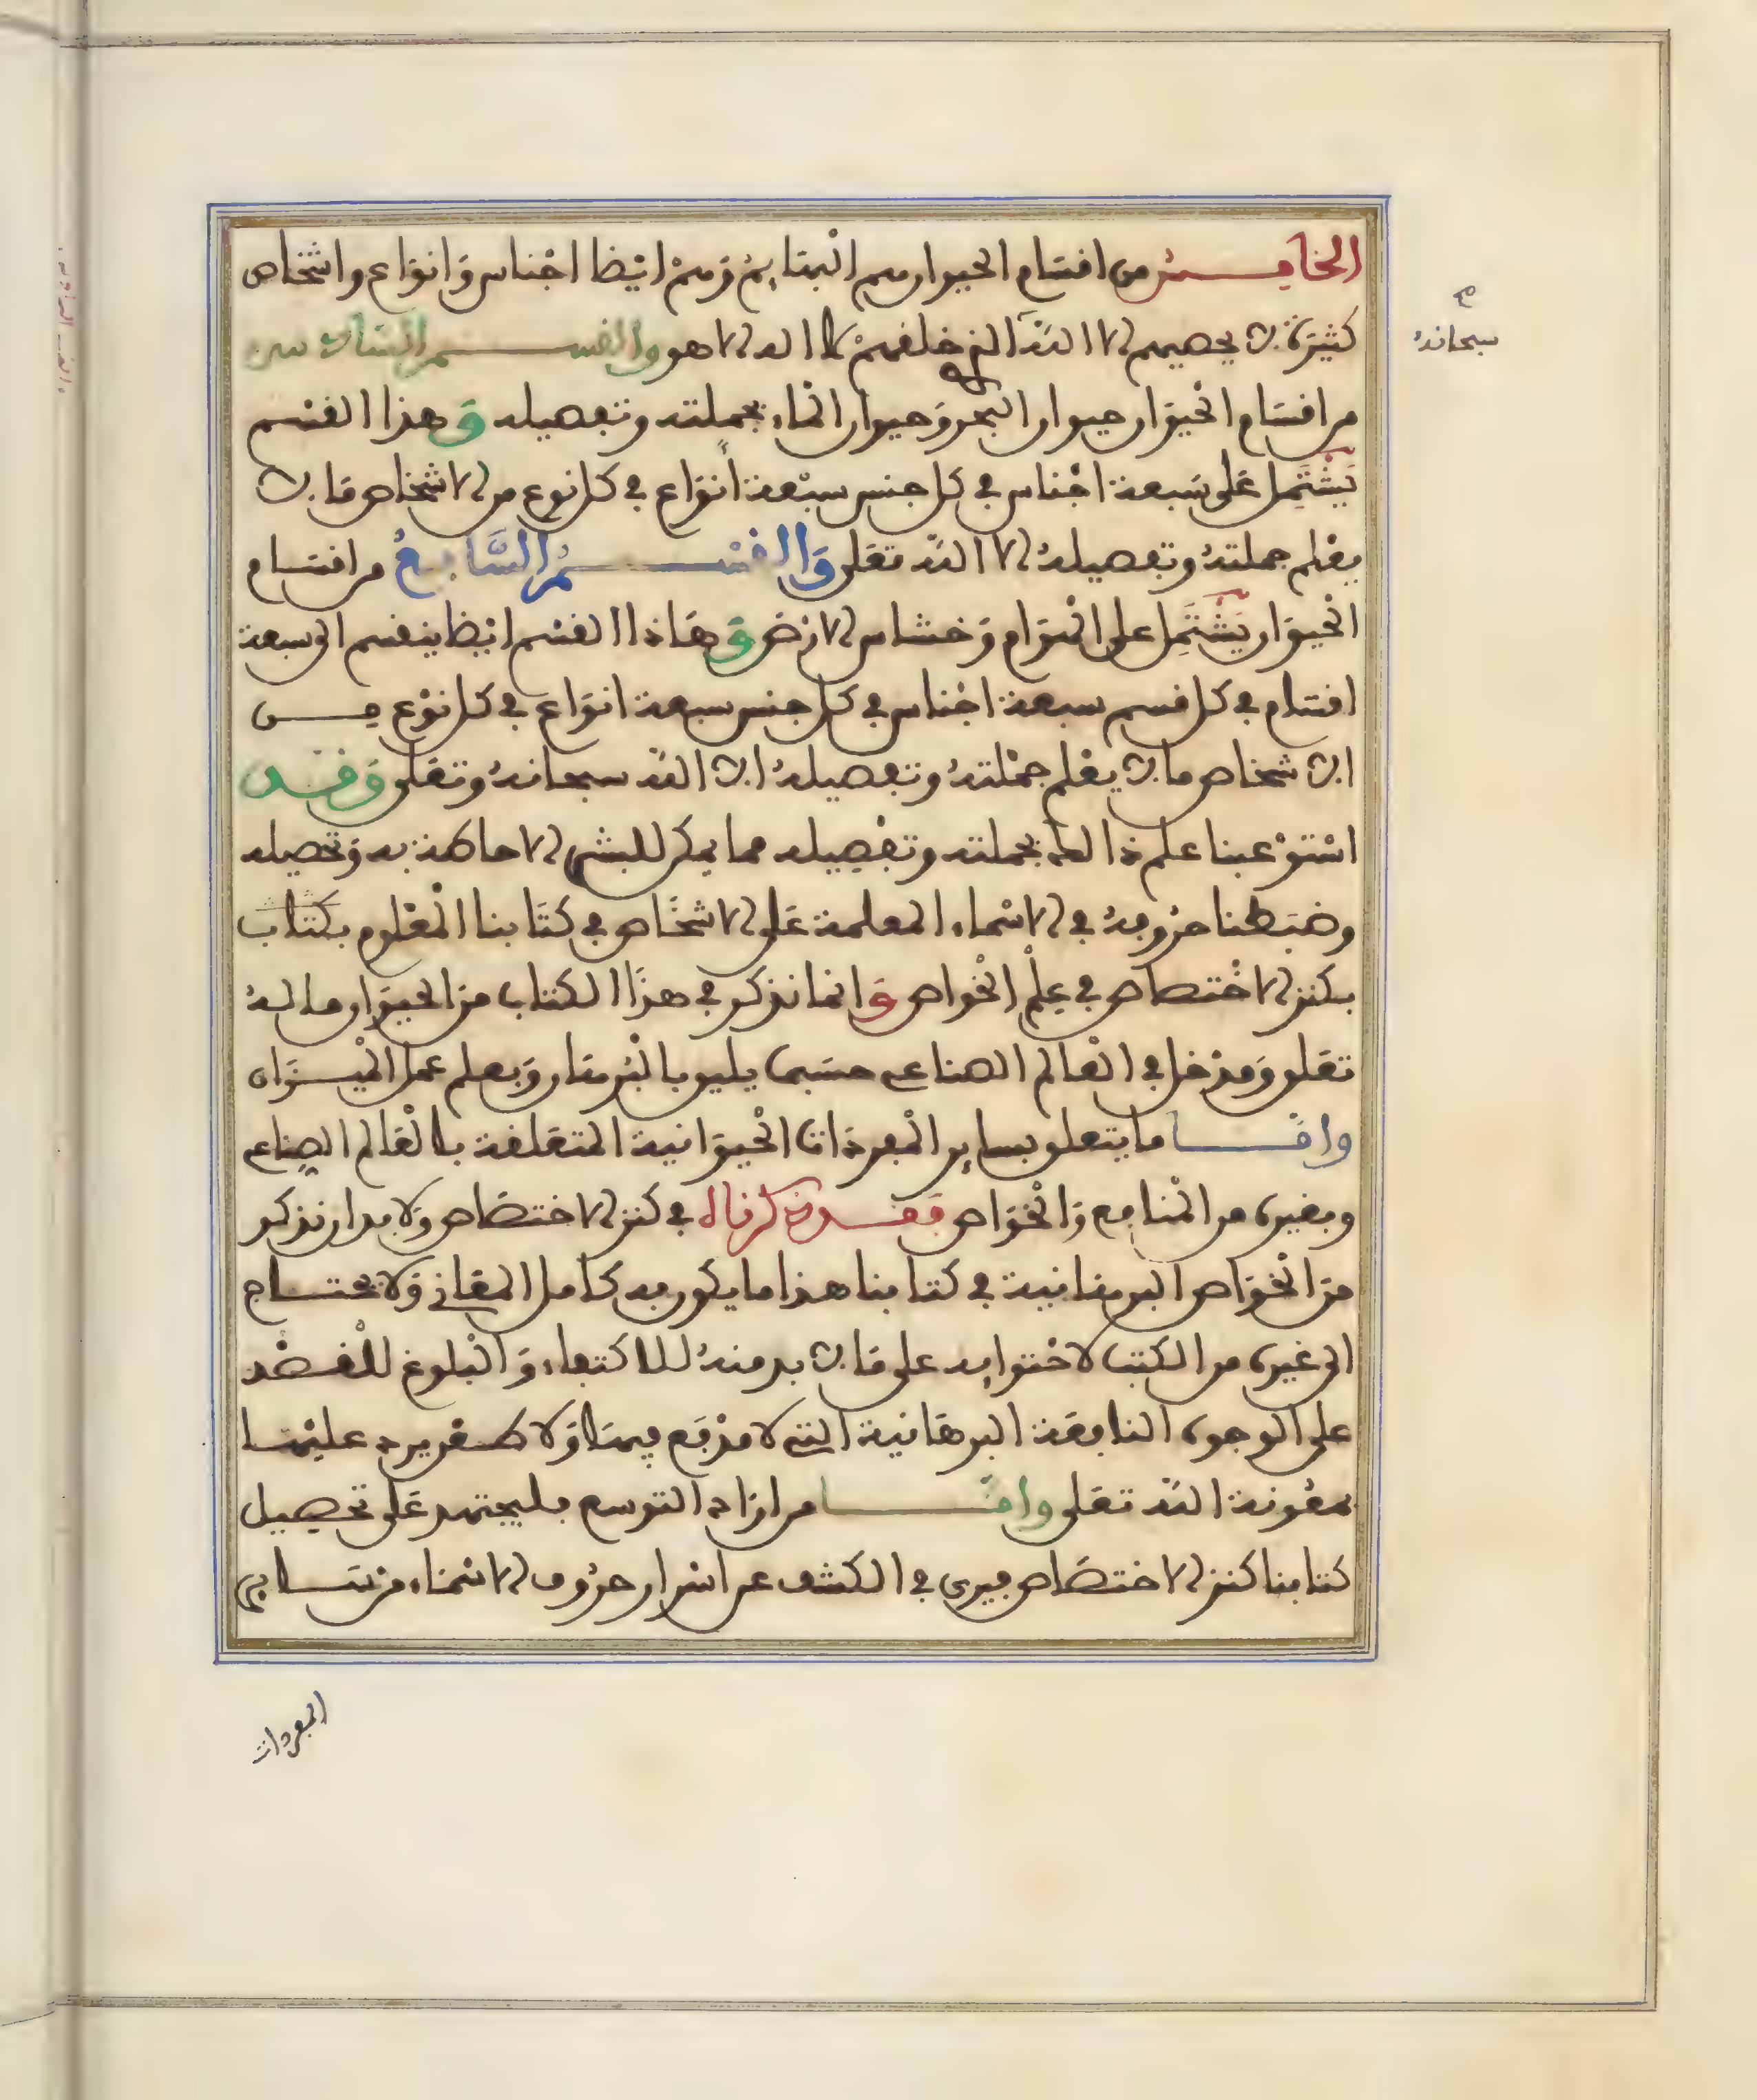 الخامس من اقسام الحيوان هم البهايم وهم ايضا اجناس وانواع واشخاص
كثيرة لا يحصيهم الا الله الذي خلقهم لا اله الا هو والقسم السادس
سبحانه
من اقسام الحيوان حيوان البحر وحيوان الماء بجملته وتفصيله وهذا القسم
يشتمل على سبعة اجناس في كل جنس سبعة انواع في كل نوع من الاشخاص ما لا
يعلم جملته وتفصيله الا الله تعلى والقسم السابع من اقسام
الحيوان يشتمل على الهوام وخشاس الارض وهاذا القسم ايضا ينقسم الى سبعة
اقسام في كل قسم سبعة اجناس في كل جنس سبعة انواع في كل نوع من
الاشخاص ما لا يعلم جملته وتفصيله الا الله سبحانه وتعلى وقد
استوعبنا علم ذالك بجملته وتفصيله مما يمكن للبشر الاحاطة به وتحصيله
وضبطنا حروفه في الاسماء المعلمة على الاشخاص في كتابنا المعلوم بكتاب
بكنز الاختصاص في علم الخواص وانما نذكر في هذا الكتاب من الحيوان ما له
تعلق ومدخل في العالم الصناعي حسبما يليق بالبرهان وبعلم عمل الميزان
واما ما يتعلق بساير المفردات الحيوانية المتعلقة بالعالم الصناعي
وبغيره من المنافع والخواص فقد ذكرناه في كنز الاختصاص ولا بد ان نذكر
من الخواص البرهانية في كتابنا هذا ما يكون به كامل المعاني ولا يحتاج
الى غيره من الكتب لاحتوايه على ما لا بد منه للاكتفاء والبلوغ للقصد
على الوجوه النافعة البرهانية التي لا مدفع فيها ولا طعن يرد عليها
بمعونة الله تعلى واما من اراد التوسع فليجتهد على تحصيل
كتابنا كنز الاختصاص فيرى في الكشف عن اسرار حروف الاسماء من ساير
المفردات